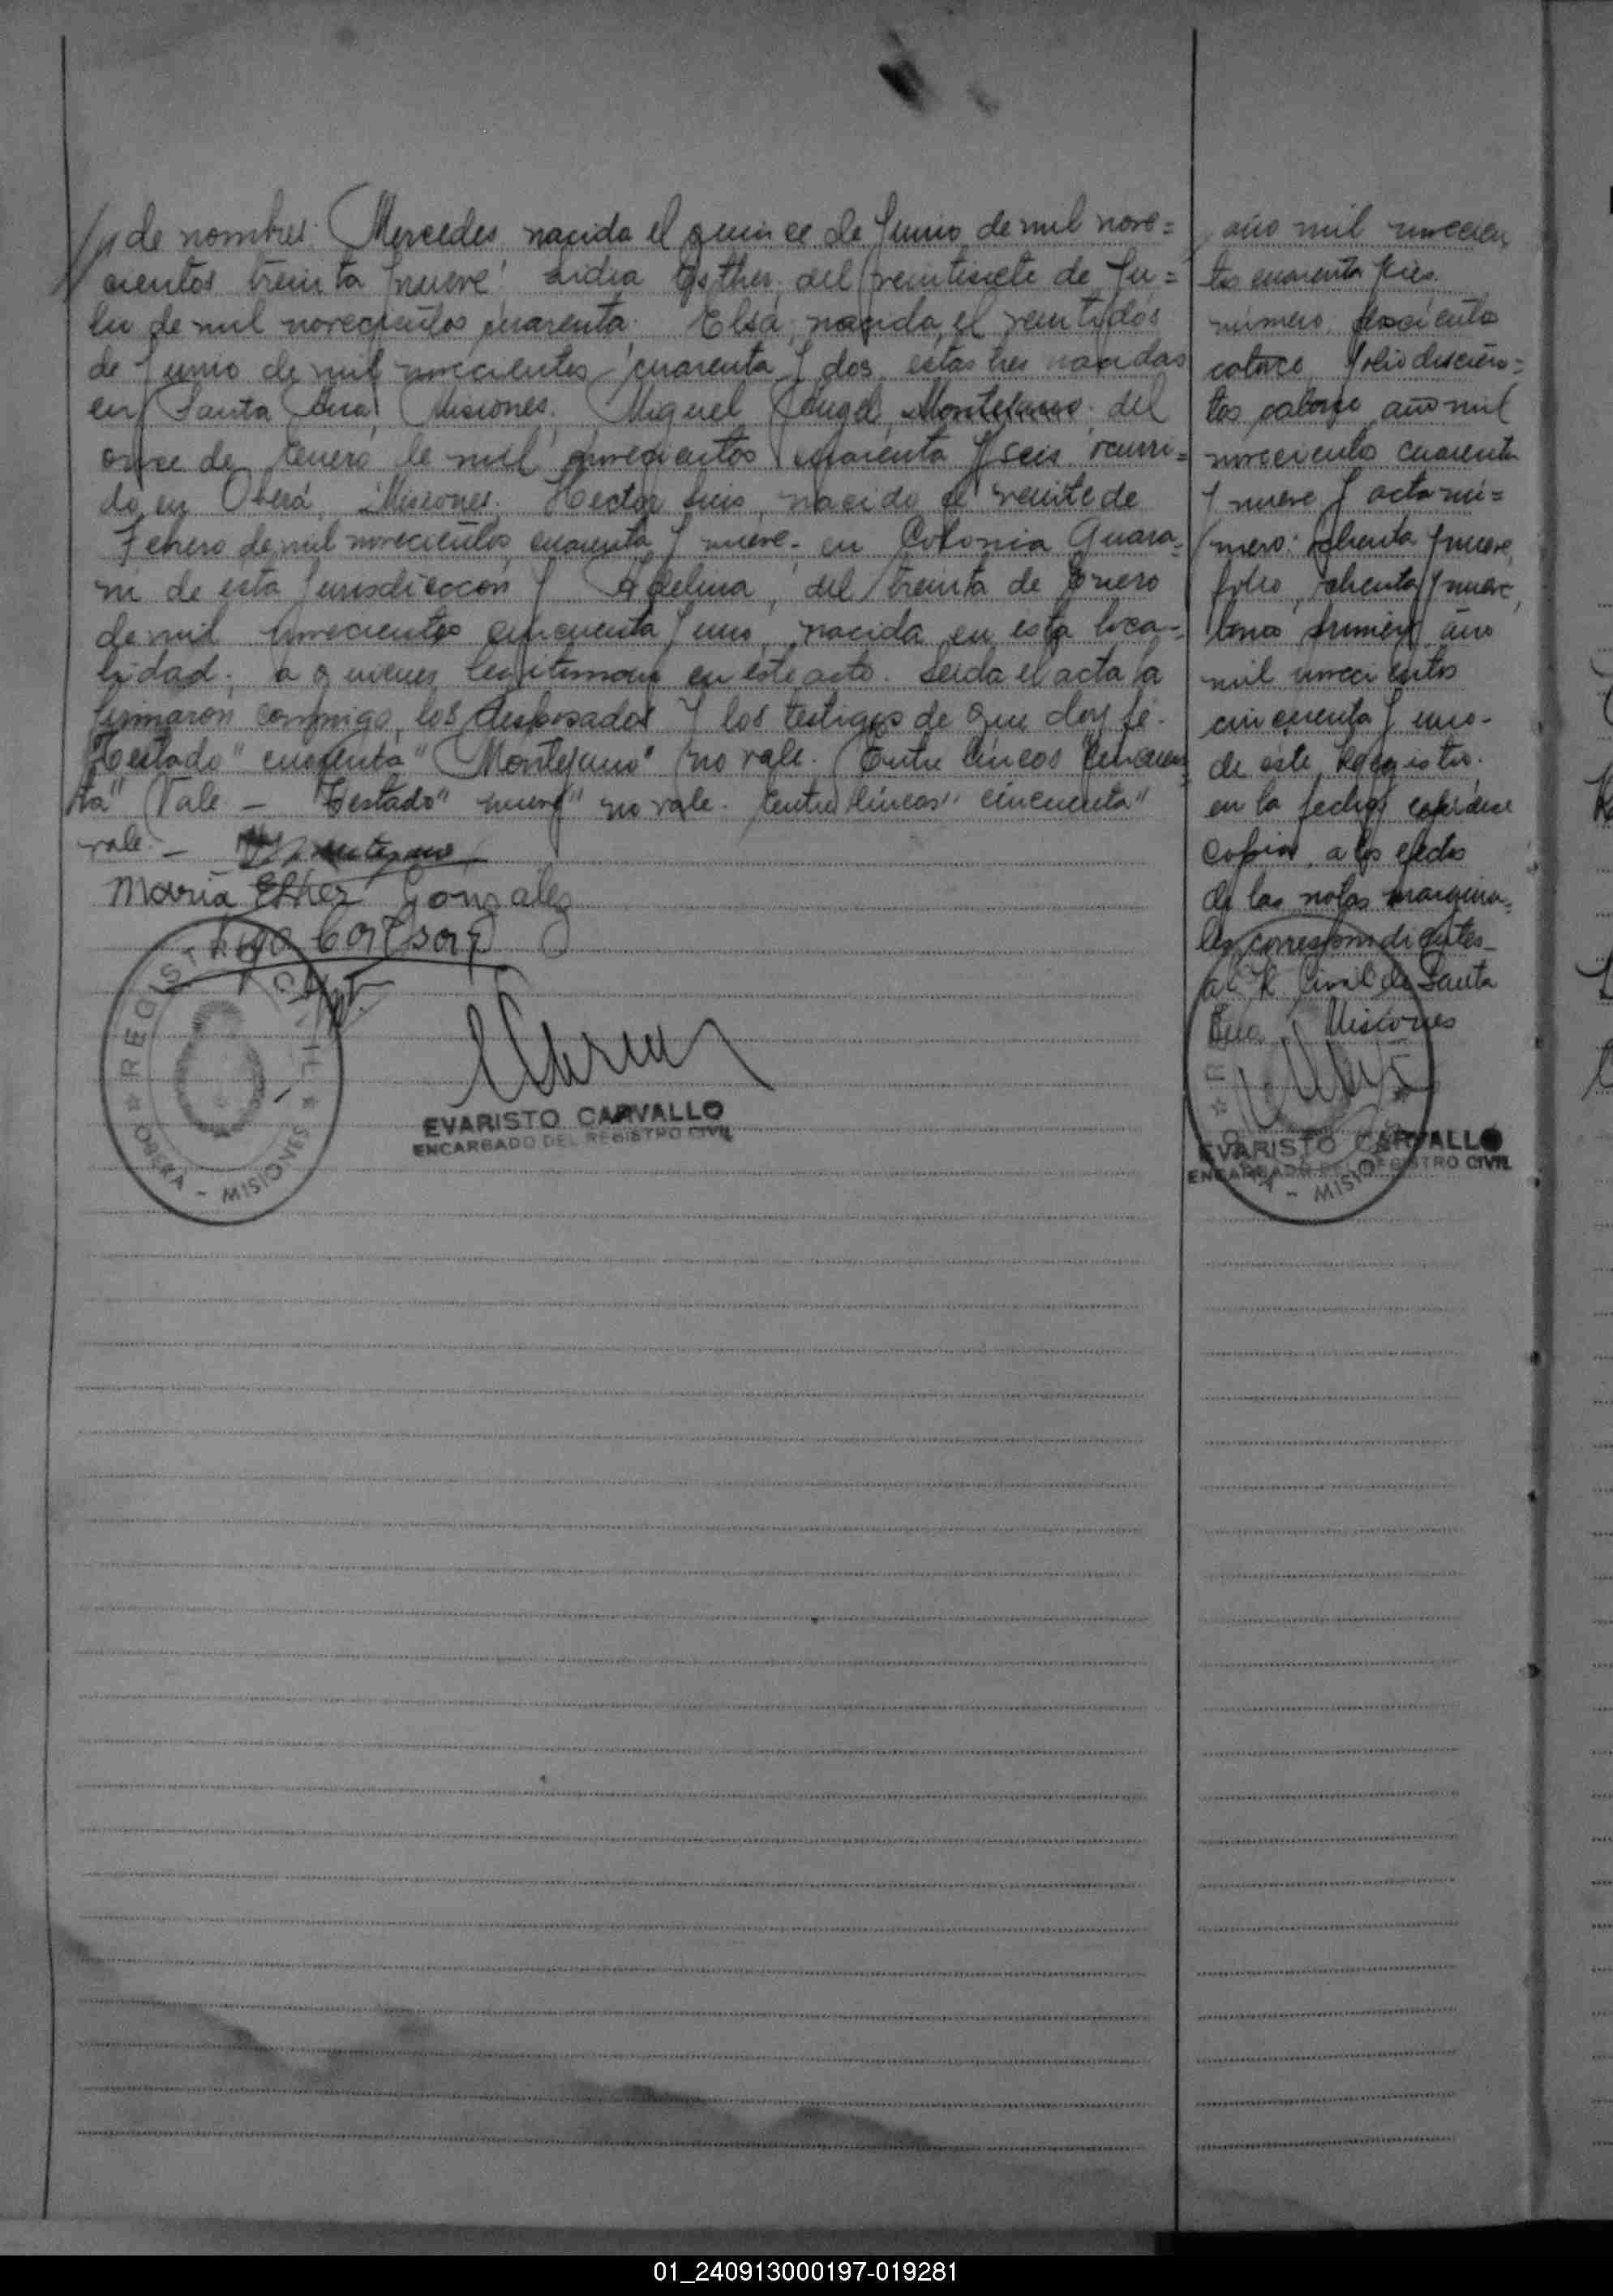 de nombres: Mercedes nacida el quince de Junio de mil nove=
cientos treinta y nueve. Lidia Esther, del veintisiete de Ju=
lio de mil novecientos cuarenta. Elsa, nacida el veintidos
de Junio de mil novecientos cuarenta y dos, estas tres nacidas
en Santa Ana, Misiones. Miguel Angel Montejano del
once de Enero de mil novecientos cuarenta y seis ocurri=
do en Oberá, Misiones. Hector Luis, nacido el veinte de
Febrero de mil novecientos cuarenta y nueve- en Colonia Guara=
ni de esta Jurisdiccion y Adelina, del treinta de Enero
de mil novecientos cincuenta y uno, nacida en esta loca=
lidad; a quienes legitiman en este acto. Leida el acta la
firmaron conmigo, los desposados y los testigos de que doy fé.
Testado "cuarenta" "Montejano" no vale. Entre lineas "cincuen
ta" Vale - Testado "nueve" no vale. Entre lineas "cincuenta"
vale. -
Maria Esther Gonzalez
REGISTRO CIVIL
OBERA - MISIONES
EVARISTO CARVALLO
ENCARGADO DEL REGISTRO CIVIL
año mil novecien
tos cuarenta
número
catorce, folio doscien=
tos catorce, año mil
novecientos cuarenta
y nueve y acta nú=
mero: ochenta y nueve,
folio, ochenta y nueve,
tomo primero año
mil novecientos
cincuenta y uno-
de este Registro.
en la fecha expidese
copia, a los efectos
de las notas margina=
les correspondientes-
al R. Civil de Santa
Ana, Misiones
EVARISTO CARVALLO
ENCARGADO DEL REGISTRO CIVIL
MISIO
01_240913000197-019281